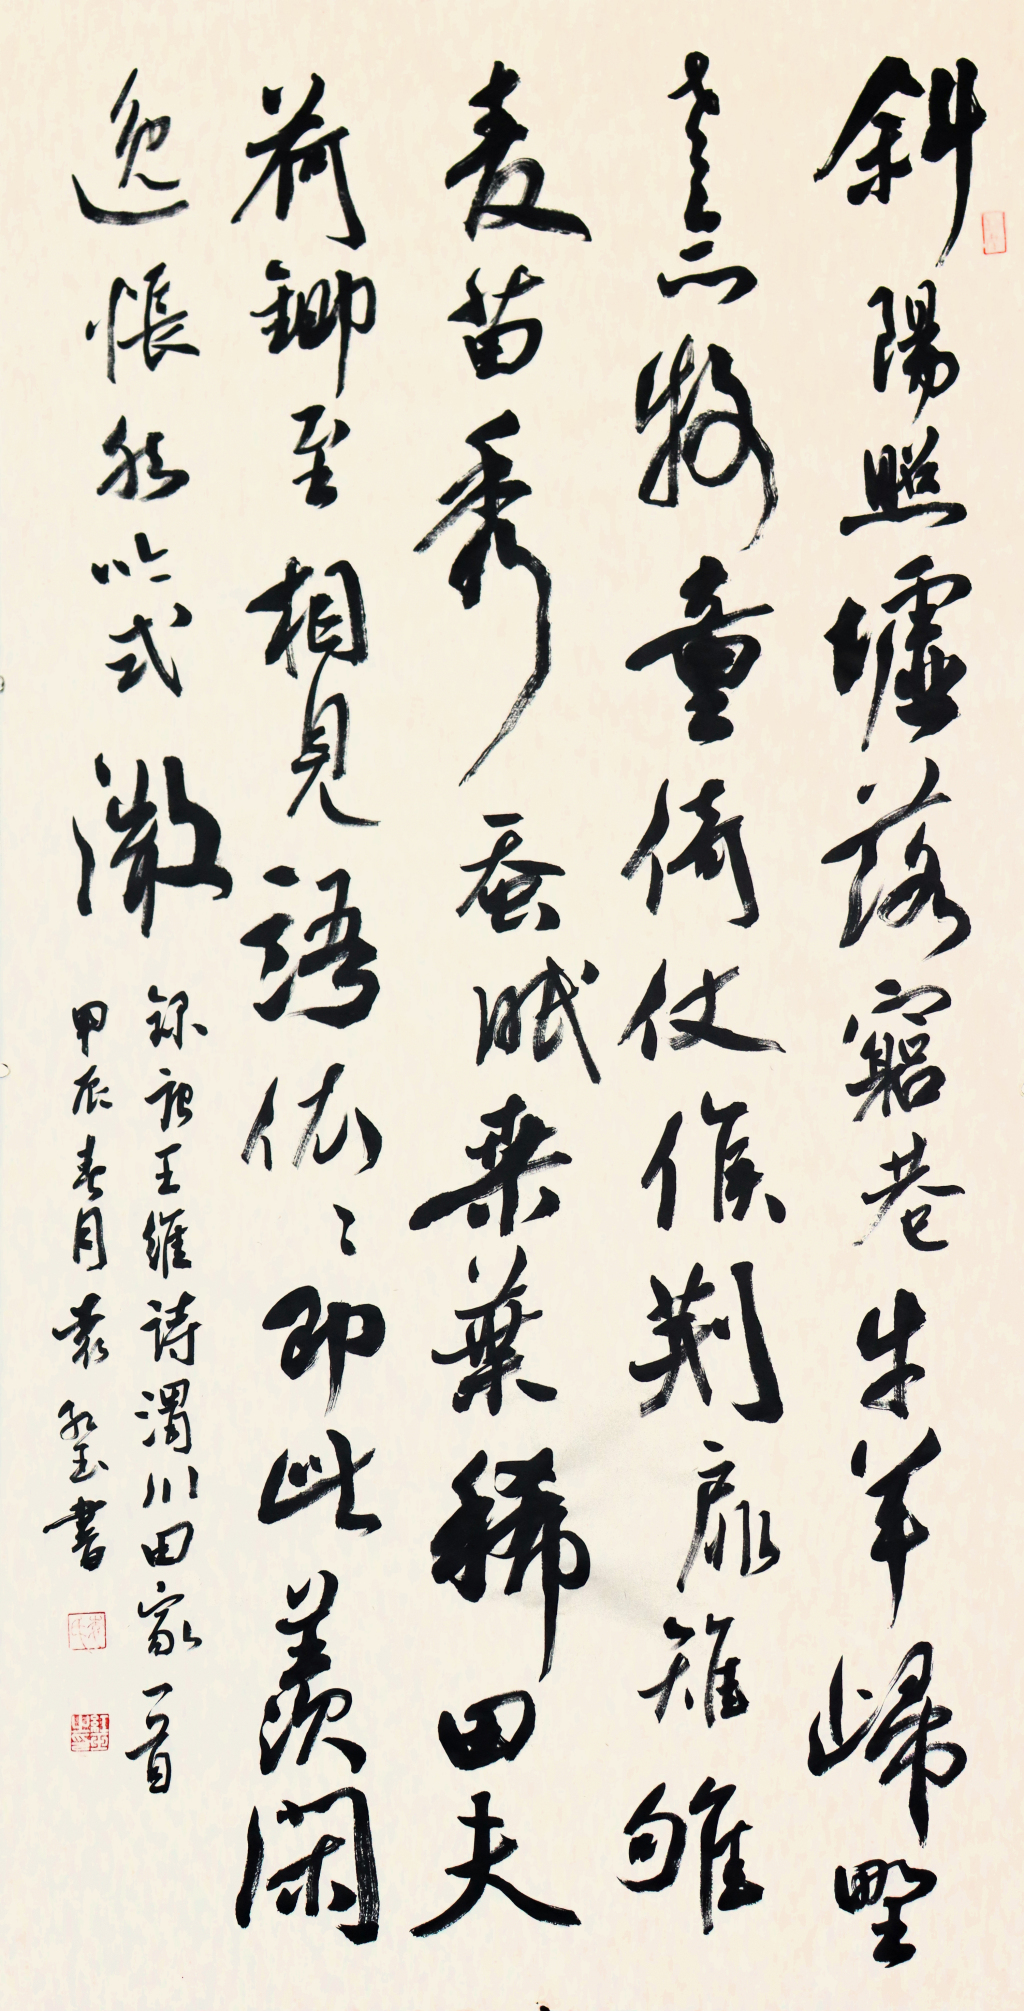 斜陽照墟落窮巷牛羊歸野
老念牧童倚仗候荆扉雉雊
麦苗秀蚕眠桑葉稀田夫
荷鋤至相見語依々即此羨閑
逸悵然吟式微
録唐王維詩渭川田家一首
甲辰春月袁紅玉書